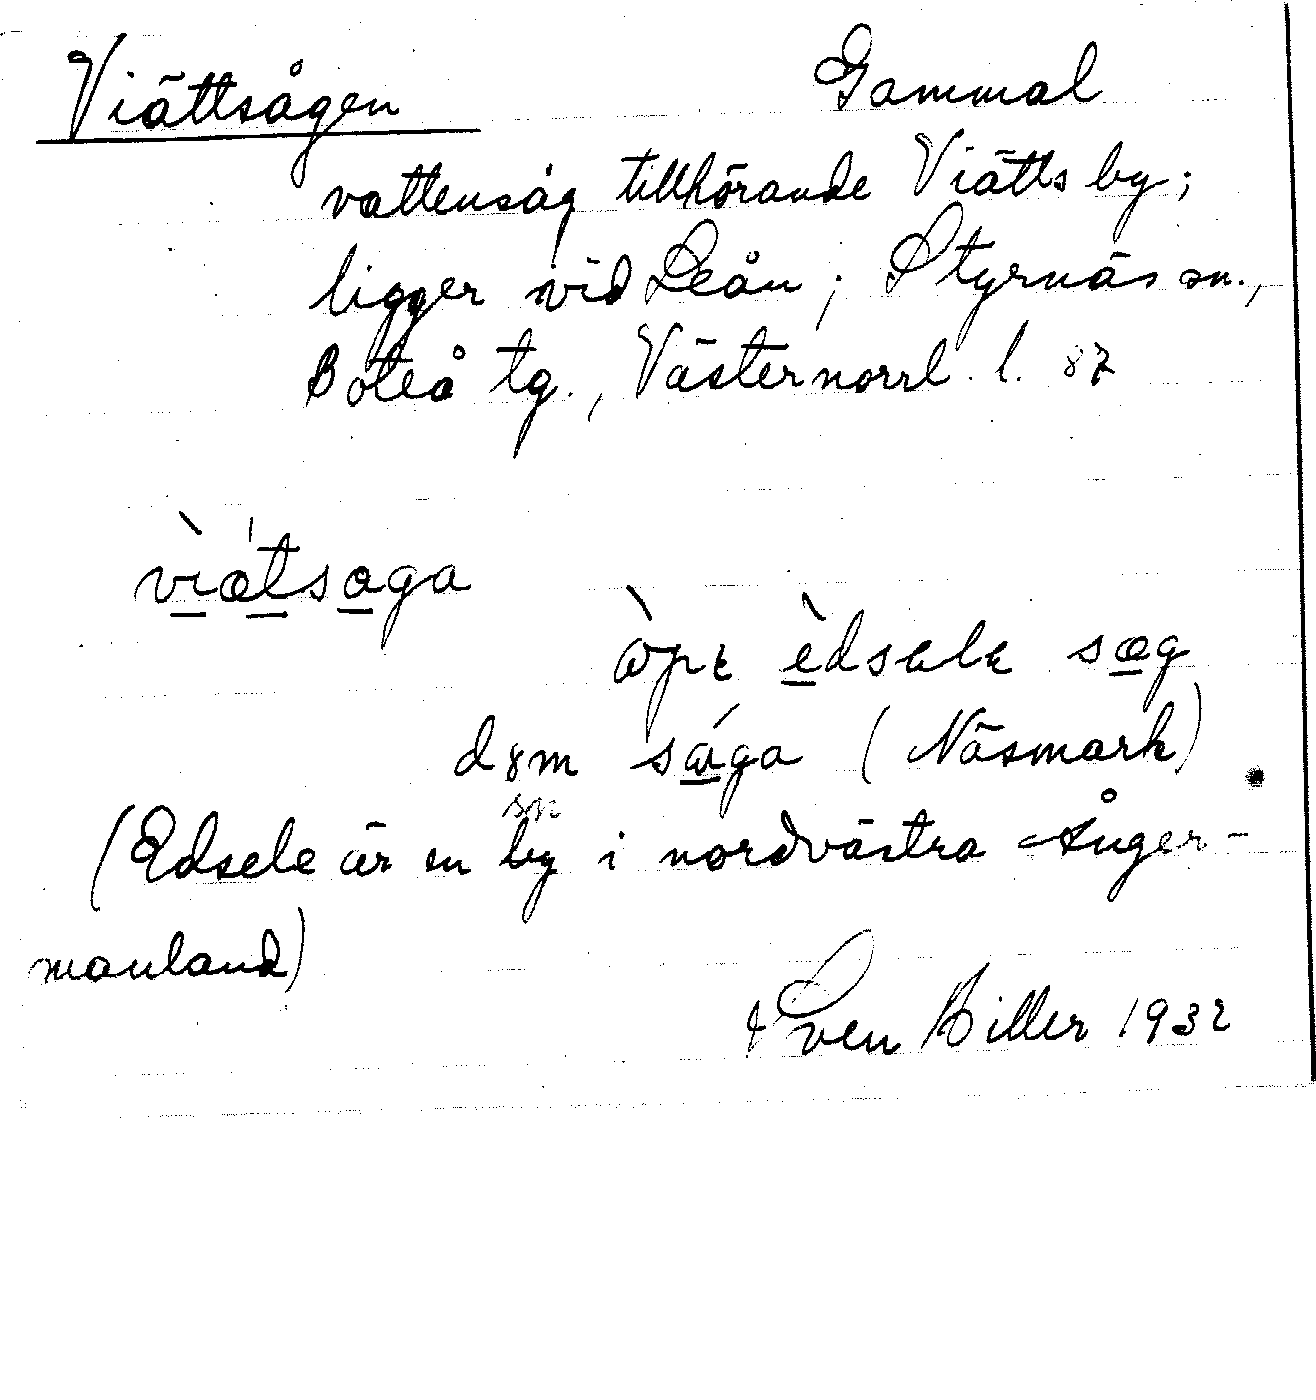 Viättsågen Gammal
vattensåg tillhörande Viätts by;
ligger vid Leån; Styrnäs sn.,
Boteå tg., Västernorrl. l. 87
vìætsaga
òpε èdsɛlɛ sæg
d8m sága (Näsmark)
sn
(Edsele är en by i nordvästra Ånger-
manland)
Sven Hiller 1932